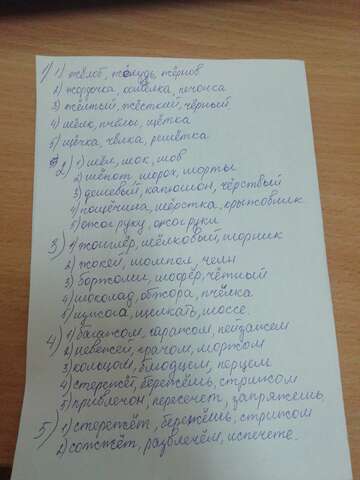 1) 1) жёлоб, жёлудь, жёрнов
2) жердочка, бомёлка, печонка
3) жёлтый, жёсткий, чёрный
4) шёлк, пчёлы, щётка
5) щёчка, чёлка, решётка
2) 1) шёл, шок, шов
2) шёпот, шорох, шорты
3) дешёвый, капюшон, чёрствый
4) пощёчина, шёрстка, крыжовник
5) ожог руку, ожог руки
3) 1) жонглёр, шёлковый, шорник
2) жокей, шомпол, челн
3) боржоми, шофёр, чётный
4) шоколад, обжора, пчёлка
5) щёлкать, шоссе.
4) 1) багажом, гаражом, пейзажем
2) невежей, врачом, моржом
3) кольцом, блюдцем, перцем
4) стережёт, бережёшь, стрижом
5) привлечён, пересечёт, запряжёшь,
5) 1) стережёт, бережёшь, стрижом
2) сожжёт, развлечём, испечёте.